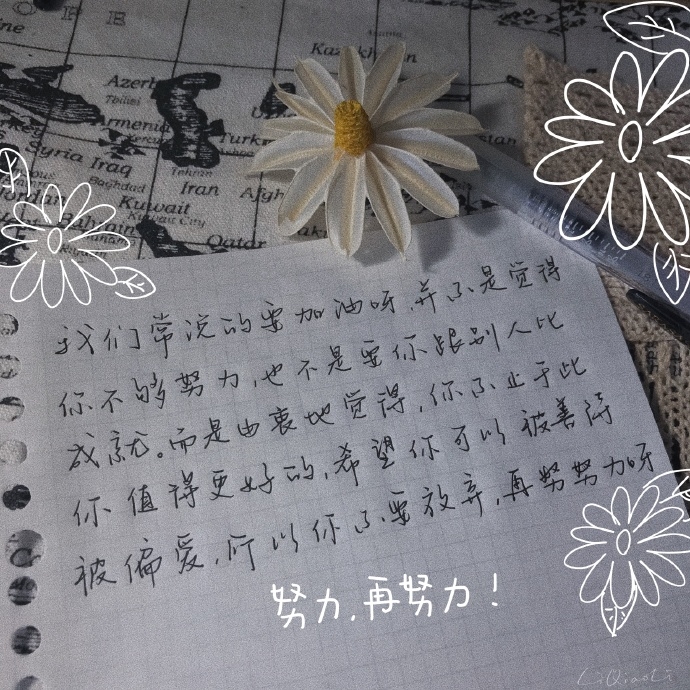 OPE
Kazakhstan
Azerb
Tbilisi
Armenia
Turk
Syria Iraq
Tehran
Baghdad
Iran
Afgh
Kuwait
Kuwait City
Bahrain
Qatar
我们常说的要加油呀,并不是觉得
你不够努力,也不是要你跟别人比
成就。而是由衷地觉得,你不止于此
你值得更好的,希望你可以被善待
被偏爱,所以你不要放弃,再努努力呀
努力,再努力!
LiQiaoLi